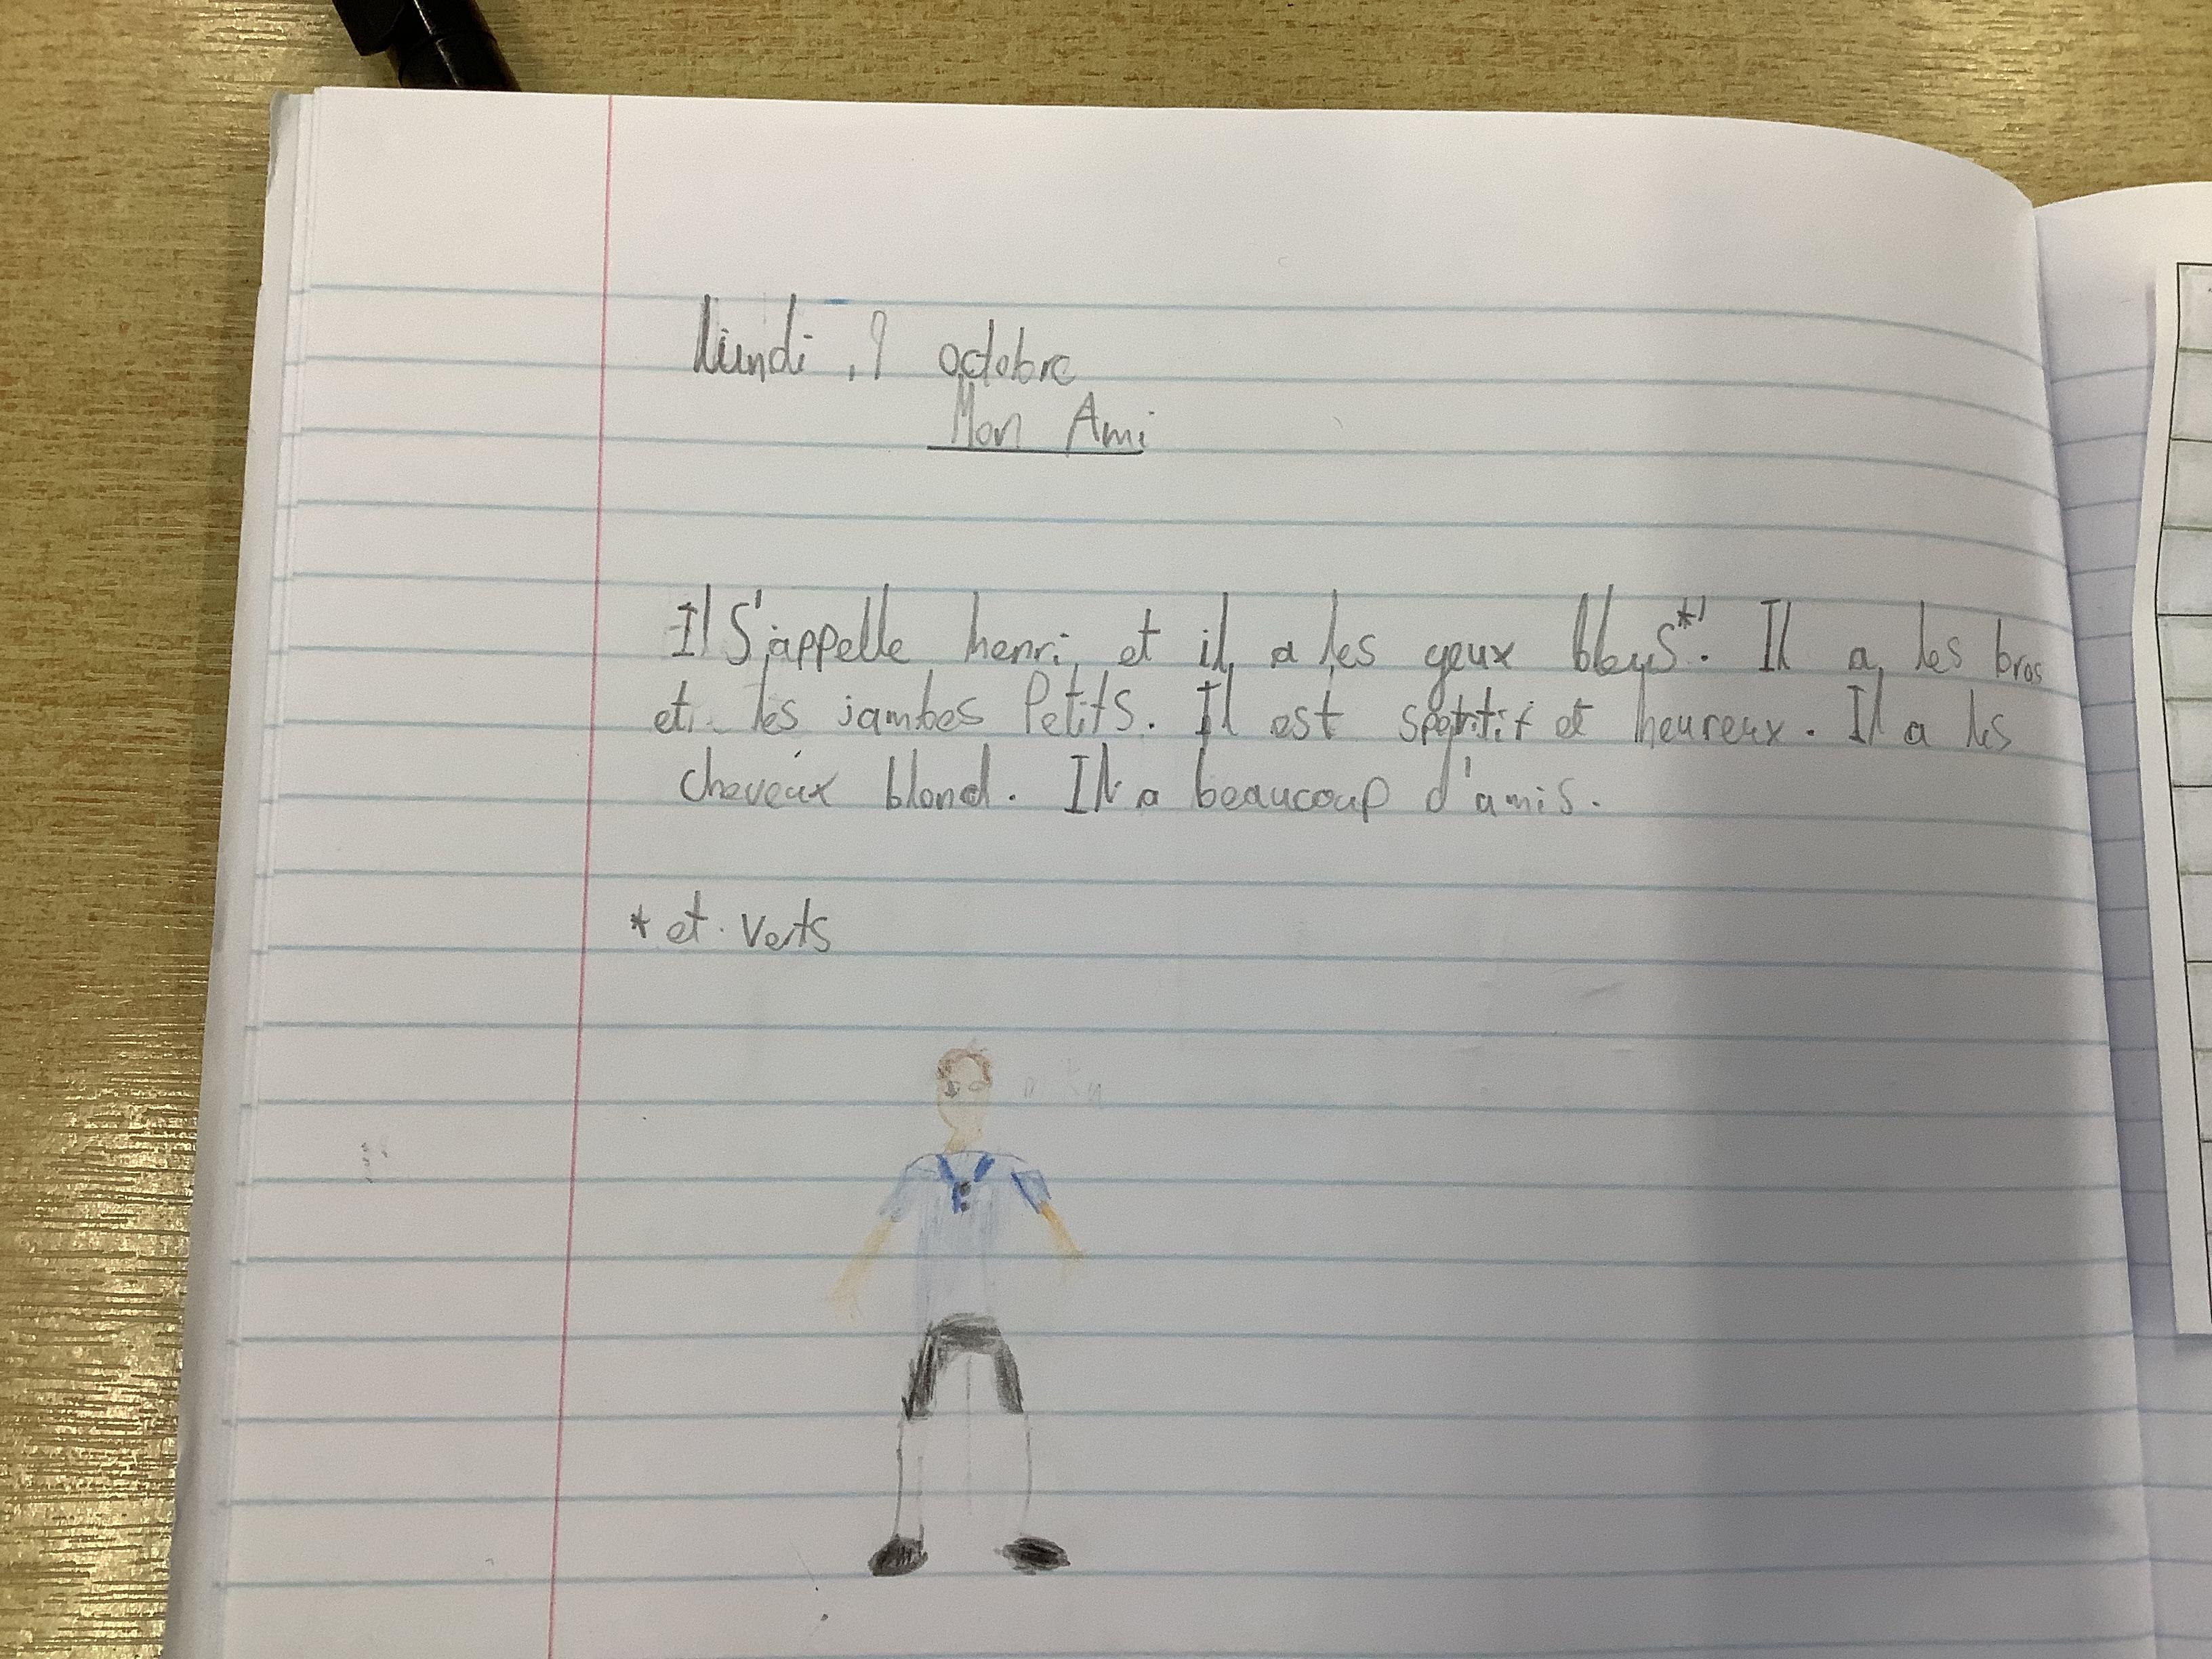 lundi, 9 octobre
Mon Ami
Il S'appelle henri, et il a les yeux bleus*. Il a les bras
et les jambes Petits. Il est sportif et heureux. Il a les
cheveux blond. Il a beaucoup d'amis.
* et verts